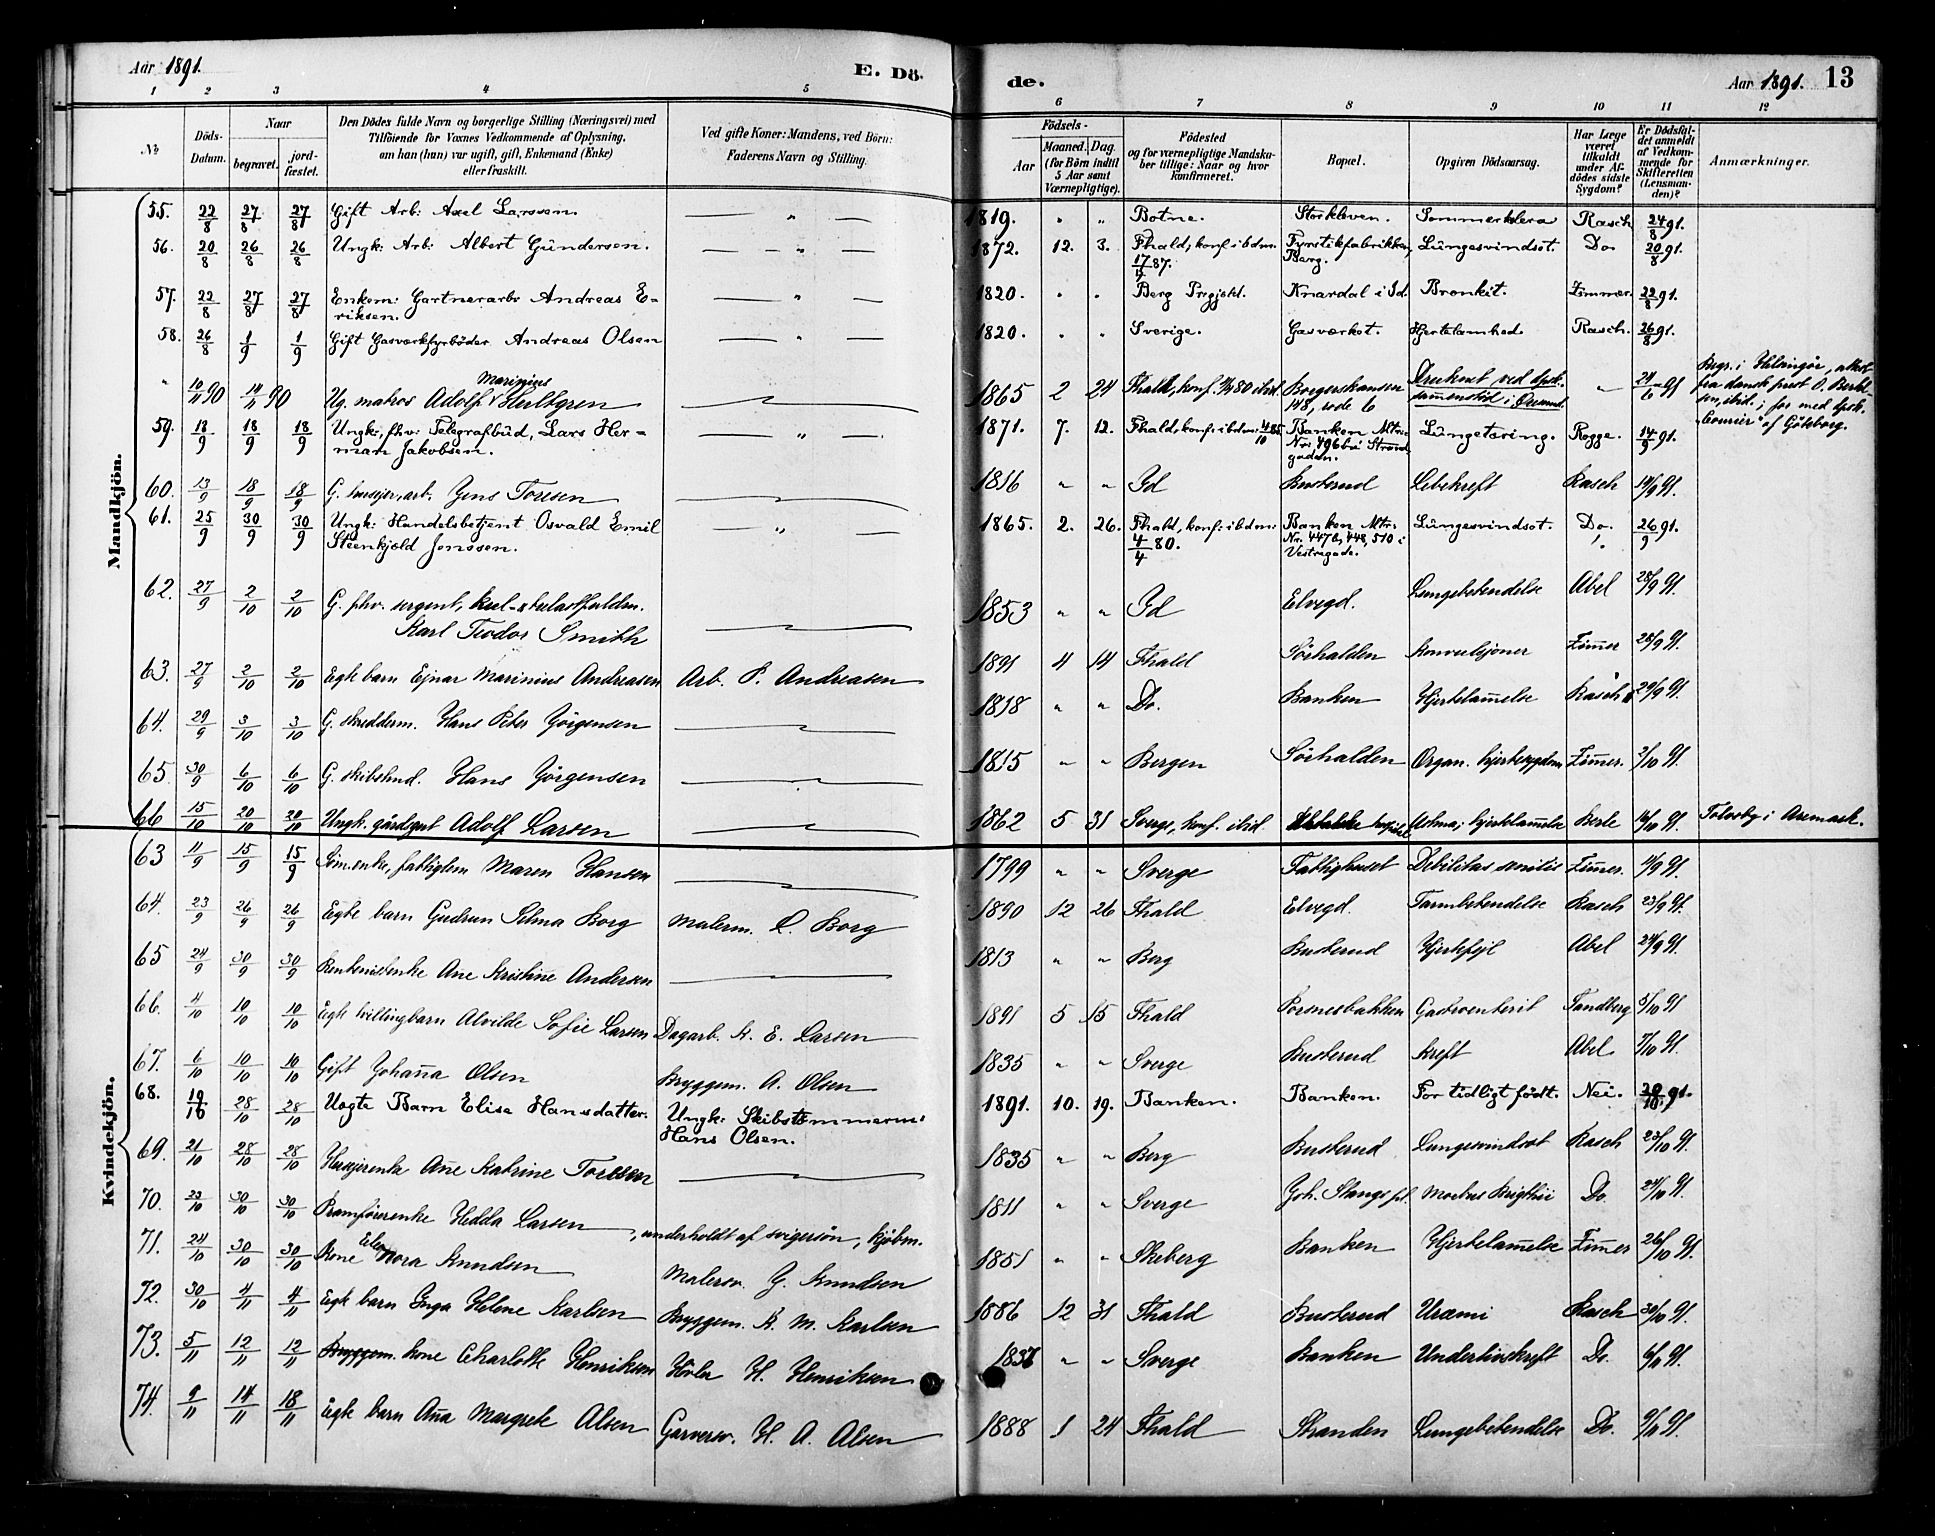 Aar 1891.
E. Dö-
de.
Aar 1891. 13
1 2 3 4 5 6 7 8 9 10 11 12
No
Döds-Datum.
Naar
begravet.
jord-fæstet.
Den Dödes fulde Navn og borgerlige Stilling (Næringsvei) med
Tilföiende for Voxnes Vedkommende af Oplysning,
om han (hun) var ugift, gift, Enkemand (Enke)
eller fraskilt.
Ved gifte Koner: Mandens, ved Börn:
Faderens Navn og Stilling.
Födsels-
Aar
Maaned. Dag.
(for Börn indtil
5 Aar samt
Værnepligtige).
Födested
og for værnepligtige Mandska-
ber tillige: Naar og hvor
konfirmeret.
Bopæl.
Opgiven Dödsaarsag.
Har Læge
været
tilkaldt
under Af-
dödes sidste
Sygdom?
Er Dödsfal-
det anmeldt
af Vedkom-
mende for
Skifteretten
(Lensman-
den)?
Anmærkninger.
Mandkjön.
55. 22/8 27/8 27/8 Gift Arb: Axel Larssen. — „ — 1819. „ „ Botne. Storkleven. Sommerkolera Rasch 24/8 91.
56. 20/8 26/8 26/8 Ungk: Arb: Albert Gundersen. — „ — 1872. 12. 3. Fhald, konf. ibdm. Fyrstikfabrikken, Lungesvindsot. Do 20/8 91.
87. Berg.
57. 22/8 27/8 27/8 Enkem: Gartnerarb: Andreas E- — „ — 1820. „ „ Berg Prgjeld. Knardal i Id. Bronkit. Zimmer. 22/8 91.
riksen.
58. 26/8 1/9 1/9 Gift Gasverksfyrböder Andreas Olsen — „ — 1820. „ „ Sverige. Gasværket. Hjertelamhed. Rasch. 26/8 91.
„ 10/11 90 14/11 90 Ug. matros Adolf Marinius Hultgren — 1865 2 24 Fhald, konf. 80 ibid. Borgerskansen Druknet ved dpsk. „ 24/6 91 Begr. i Helsingör, attest
148, rode 6 sammenstöd i Öresund. fra dansk prest O. Bertel-
sen, ibid.; for med dpsk.
„Courier" af Göteborg.
59. 18/9 18/9 Ungk., fhv: Telegrafbud, Lars Her- — „ — 1871. 7. 12. Fhald, konf. ibdm: 4/10 85 Banken Mtr: Lungetæring. Rogge. 14/9 91.
man Jakobsen. Nr: 496b i Strand-
gaden.
60. 13/9 18/9 18/9 G. husejer, arb. Jens Toresen — 1816 „ „ Id Busterud Leberkreft Rasch 14/9 91.
61. 25/9 30/9 30/9 Ungk: Handelsbetjent Osvald Emil — „ — 1865. 2. 26. Fhald, konf: ibdm: Banken Mtr: Lungesvindsot. Do. 26/9 91.
Steenkjæld Jonssen. 4/4 80. Nr. 447b, 448, 510 i
Vestregade.
62. 27/9 2/10 2/10 G. fhv. sergent, Lungebetendelse Abel 28/9 91.
Karl Teodor Smith — 1853 „ „ Id Elvegd.
63. 27/9 2/10 2/10 Egte barn Ejnar Marinius Andreasen Arb. P. Andreasen 1891 4 14 Fhald Sörhalden Konvulsjoner Zimmer 28/9 91.
64. 29/9 3/10 3/10 G. skredderm. Hans Peter Jörgensen — 1818 „ „ Do. Banken Hjertelamelse Rasch 29/9 91.
65. 30/9 6/10 6/10 G. skibstmd. Hans Jörgensen — 1815 „ „ Bergen Sörhalden Organ. hjertesygdom Zimmer. 2/10 91.
66 15/10 20/10 20/10 Ungk. gårdgut Adolf Larsen — 1862 5 31 Sverge, konf. ibid. Astma; hjertelamelse Berle 16/10 91. Tolosby i Aremark.
Kvindekjön.
63 11/9 15/9 15/9 Söm.enke, fattiglem Maren Hansen — 1799 „ „ Sverge Fattighuset Debilitas senilis Zimmer. 11/9 91.
64. 23/9 26/9 26/9 Egte barn Gudrun Selma Borg Malerm. O. Borg 1890 12 26 Fhald Elvegd. Tarmbetendelse Rasch 23/9 91.
65 24/9 30/9 30/9 Rentenistenke Ane Kristine Andersen — 1813 „ „ Berg Busterud Hjertefejl Abel 24/9 91.
66. 4/10 10/10 10/10 Egte tvillingbarn Alvilde Sofie Larsen Dagarb. K. E. Larsen 1891 5 15 Fhald Porsnesbakken Gastroenterit Tandberg 5/10 91
67. 6/10 10/10 10/10 Gift Johanna Olsen Bryggem. A. Olsen 1835 „ „ Sverge Busterud Kreft Abel 7/10 91.
68. 19/10 28/10 28/10 Uegte Barn Elise Hansdatter. Ungk: Skibstömmerm: 1891. 10. 19. Banken. Banken. For tidligt födt. Nei. 20/10 91.
Hans Olsen.
69. 21/10 28/10 28/10 Husejerenke Ane Katrine Toresen — 1835 „ „ Berg Busterud Lungesvindsot Rasch 23/10 91.
70. 23/10 30/10 30/10 Pramförerenke Hedda Larsen, underholdt af svigersön, kjöbm. 1811 „ „ Sverge Joh. Stangs pl. Morbus Brigthii Do. 24/10 91.
71. 24/10 30/10 30/10 Kone Eleonora Knudsen Malersv. G. Knudsen 1851 „ „ Skeberg Banken Hjertelamelse Zimmer 26/10 91.
72. 30/10 4/11 4/11 Egte barn Inga Helene Karlsen Bryggem. K. M. Karlsen 1886 12 31 Fhald Busterud Uræmi Rasch 30/10 91.
73. 5/11 12/11 12/11 Bryggem. kone Charlotte Henriksen Hövler H. Henriksen 1837 „ „ Sverge Banken Underlivskreft Do. 6/11 91.
74. 9/11 14/11 18/11 Egte barn Anna Margrete Alsen Garversv. H. A. Alsen 1888 1 24 Fhald Stranden Lungebetendelse Do. 9/11 91.